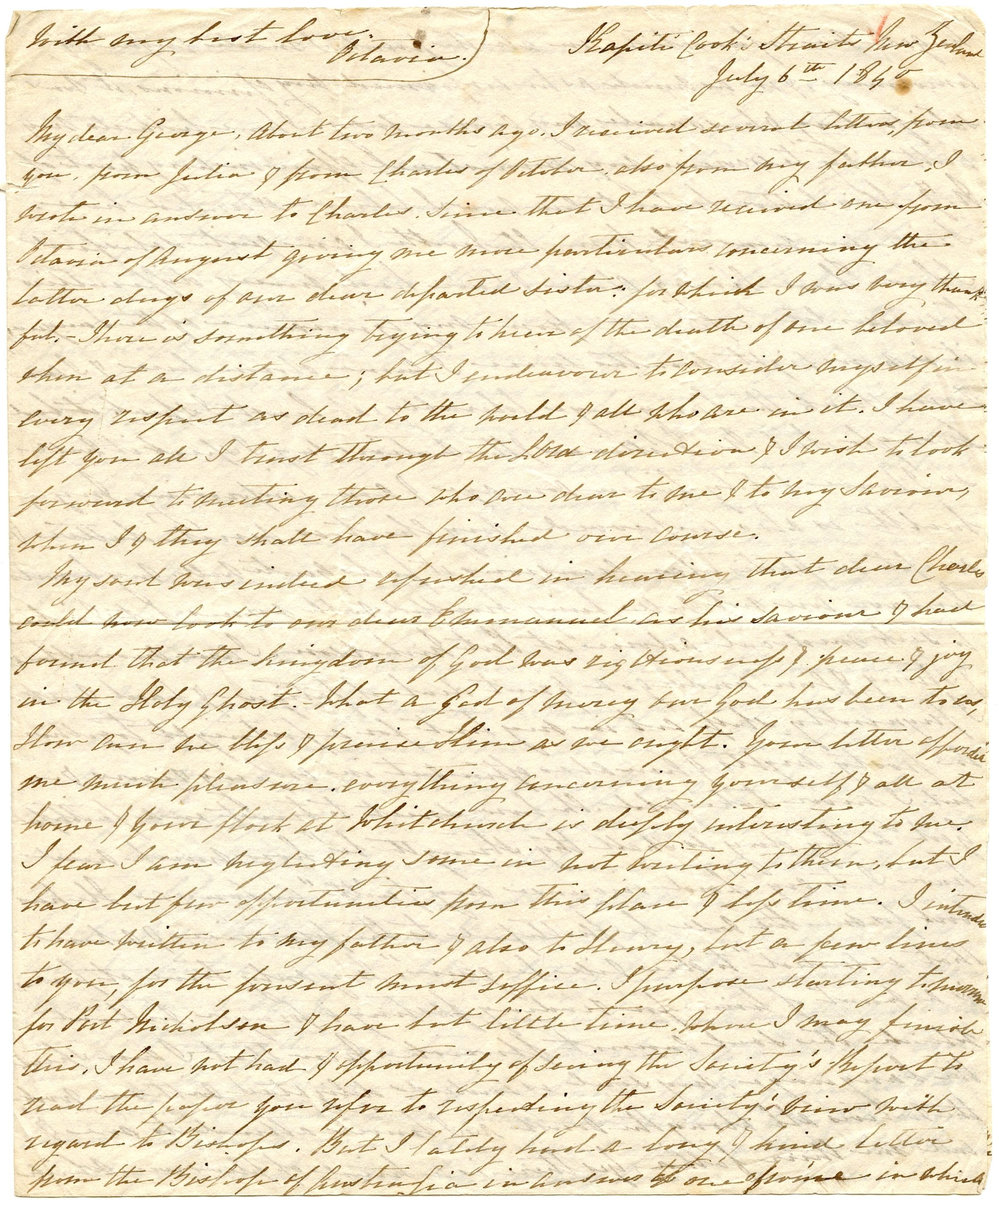 With my best love.
Octavia.
Kapiti Cook's Straits New Zealand
July 6th 1840
My dear George, About two months ago, I received several letters, from
you, from Julia & from Charles of October, also from my father, I
wrote in answer to Charles. Since that I have received one from
Octavia of August giving me more particulars concerning the
latter days of our dear departed sister: for which I was very thank-
ful. - There is something trying to hear of the death of one beloved
when at a distance; but I endeavour to consider myself in
every respect as dead to the world & all who are in it. I have
left you all I trust through the Lord direction & I wish to look
forward to meeting those who are dear to me & to my Saviour,
when I & they shall have finished our course.
My soul was indeed refreshed in hearing that dear Charles
could now look to our dear Emmanuel as his saviour & had
found that the kingdom of God was righteousness & peace & joy
in the Holy Ghost. What a God of mercy our God has been to us,
How can we bless & praise Him as we ought. Your letter afforded
me much pleasure. everything concerning yourself & all at
home & your flock at Whitchurch is deeply interesting to me.
I fear I am neglecting some in not writing to them, but I
have but few opportunities from this place & less time. I intended
to have written to my father & also to Henry, but a few lines
to you, for the present must suffice. I purpose starting tomorrow
for Port Nicholson & have but little time, where I may finish
this. I have not had & opportunity of seeing the Society's Report to
read the paper you refer to respecting the Society's view with
regard to Bishops. But I lately had a long & kind letter
from the Bishop of Australia in answer to one of mine in which